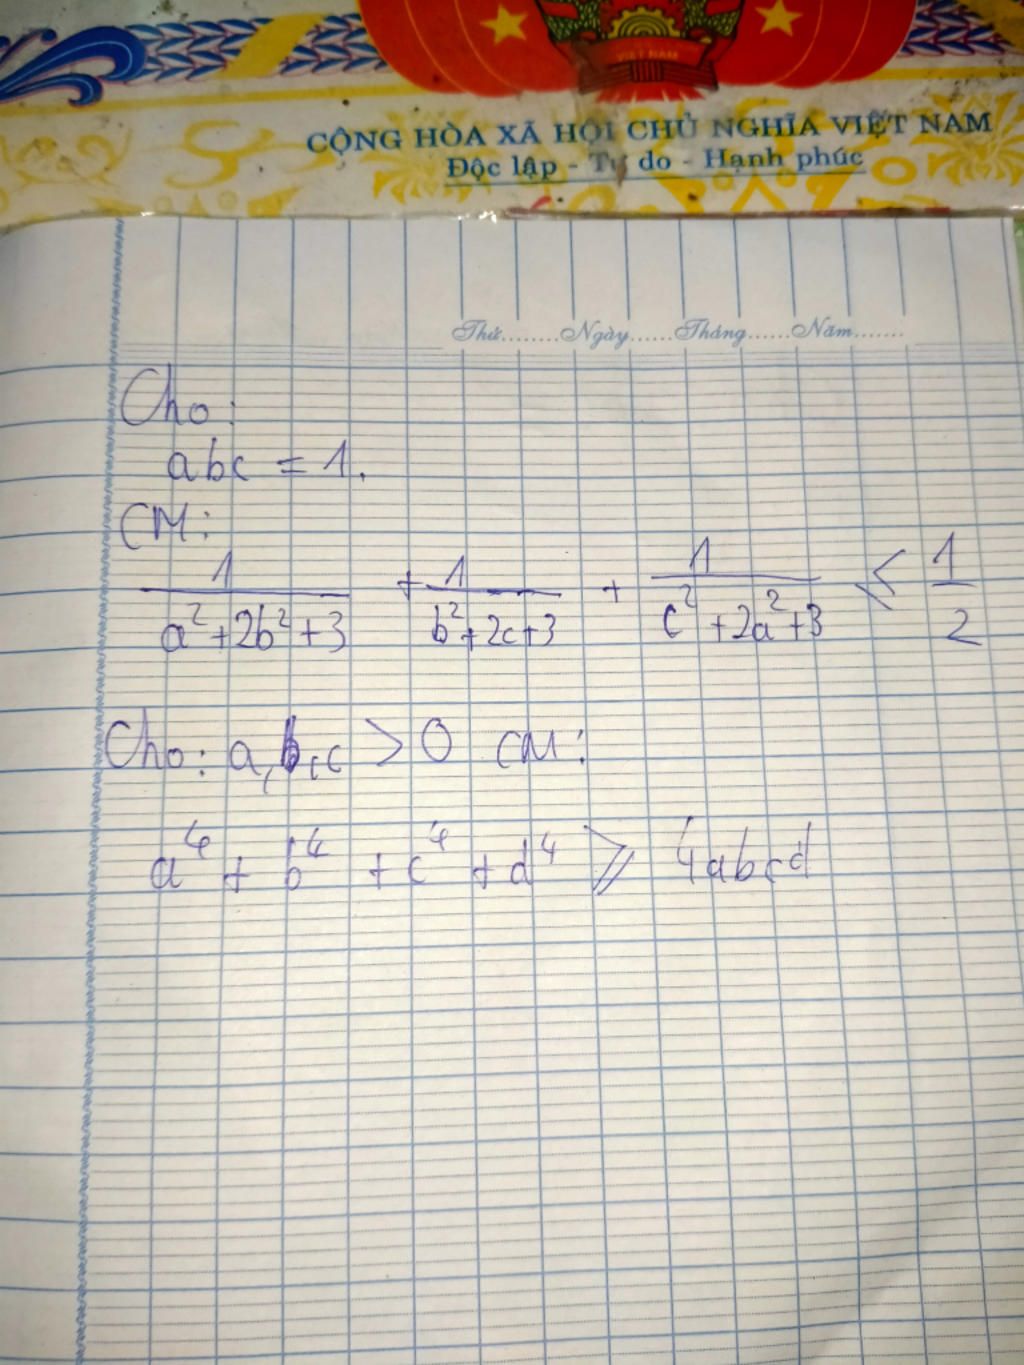 VIỆT NAM
CỘNG HÒA XÃ HỘI CHỦ NGHĨA VIỆT NAM
Độc lập - Tự do - Hạnh phúc
Thứ........Ngày......Tháng......Năm.......
Cho:
abc = 1.
CM:
1/(a²+2b²+3) + 1/(b²+2c+3) + 1/(c²+2a²+3) ≤ 1/2
Cho: a,b,c > 0 CM:
a⁴ + b⁴ + c⁴ + d⁴ ⩾ 4abcd